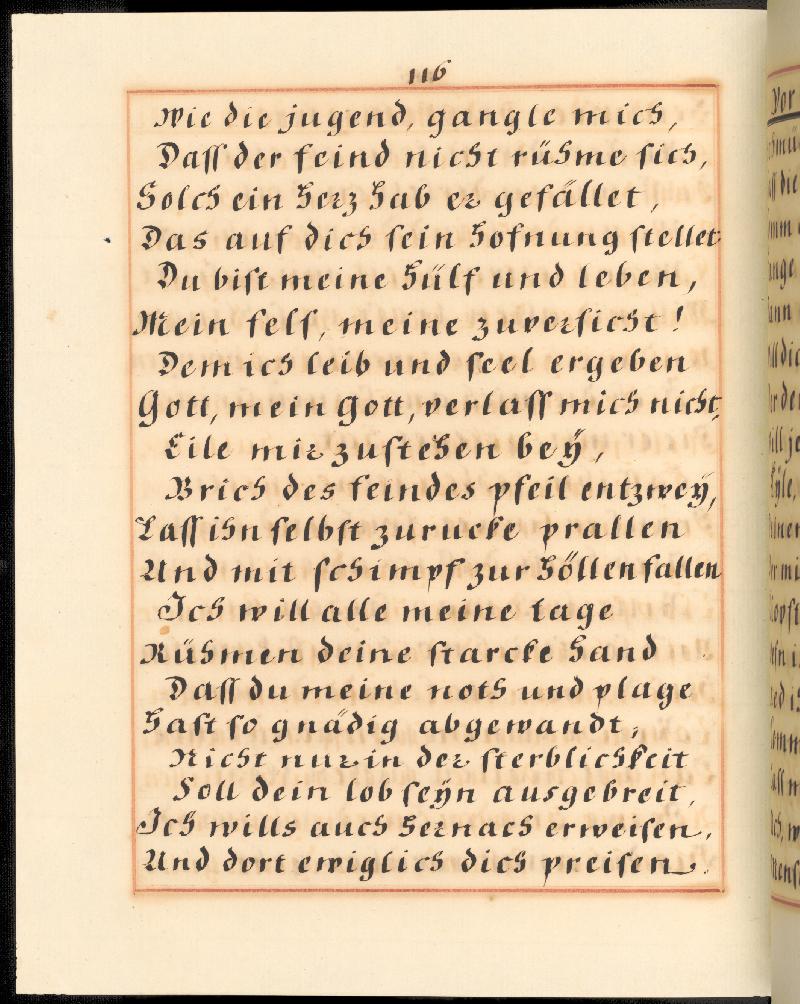 116
Wie die jugend, gangle mich,
Dass der feind nicht rühme sich,
Solch ein Herz hab er gefället,
Das auf dich sein Hofnung stellet
Du bist meine Hülf und leben,
Mein fels, meine zuversicht!
Dem ich leib und seel ergeben
Gott, mein Gott, verlass mich nicht,
Eile mir zustehen bey,
Brich des feindes pfeil entzwey,
Lass ihn selbst zurucke prallen
Und mit schimpf zur Höllen fallen
Ich will alle meine tage
Rühmen deine starcke Hand
Dass du meine noth und plage
Hast so gnädig abgewandt,
Nicht nur in der sterblichkeit
Soll dein lob seÿn ausgebreit,
Ich wills auch hernach erweisen,
Und dort ewiglich dich preisen.